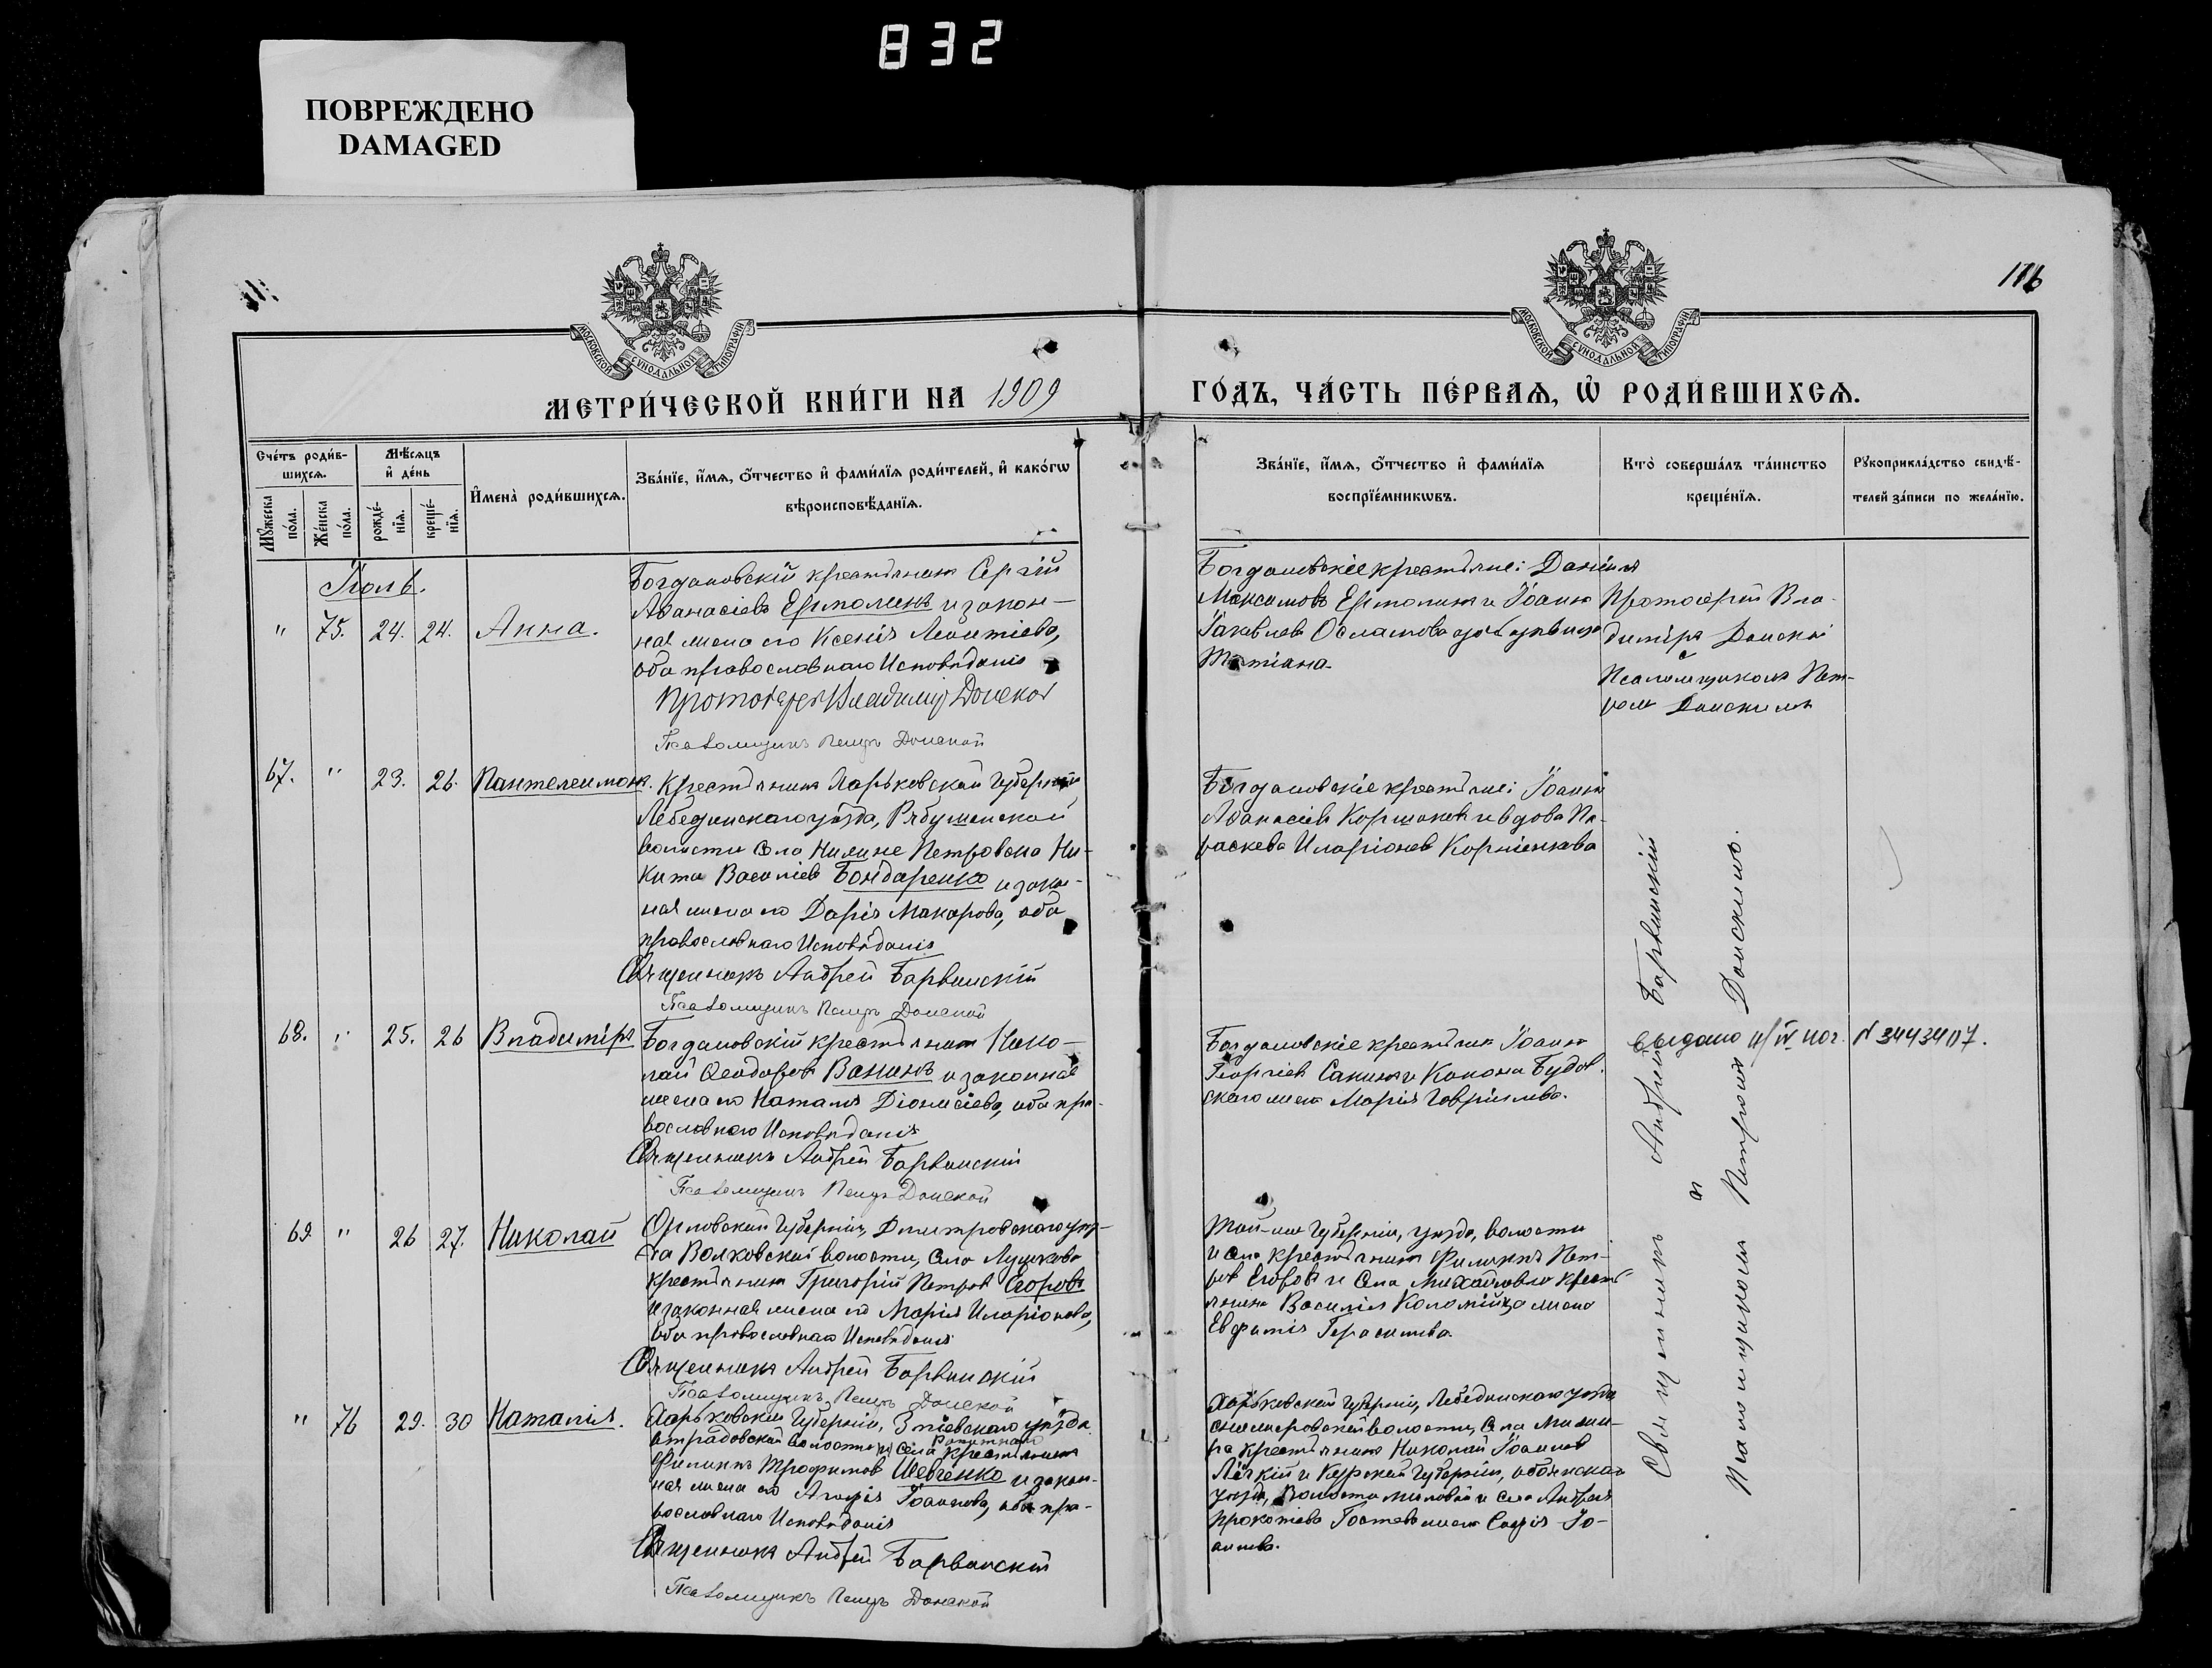 832
ПОВРЕЖДЕНО
DAMAGED
116
МОСКОВСКОЙ СѴНОДАЛЬНОЙ ТИПОГРАФІИ
МОСКОВСКОЙ СѴНОДАЛЬНОЙ ТИПОГРАФІИ
МЕТРИ́ЧЕСКОЙ КНИ́ГИ НА 1909
ГО́ДЪ, ЧА́СТЬ ПЕ́РВАѦ, Ѡ҆ РОДИ́ВШИХСѦ.
Сче́тъ роди́в-
шихсѧ.
Мꙋ́жеска
по́ла.
Же́нска
по́ла.
Мѣ́сѧцъ
и҆ де́нь
рожде́-
нїѧ.
креще́-
нїѧ.
И҆мена̀ роди́вшихсѧ.
Зва́нїе, и҆́мѧ, ѻ҆́тчество и҆ фами́лїѧ роди́телей, и҆ како́гѡ
вѣроисповѣ́данїѧ.
Зва́нїе, и҆́мѧ, ѻ҆́тчество и҆ фами́лїѧ
воспрїе́мникѡвъ.
Кто̀ соверша́лъ та́инство
креще́нїѧ.
Рꙋкоприкла́дство свидѣ́-
телей за́писи по жела́нїю.
Іюль.
" 75. 24. 24. Анна.
Богдановскій крестьянинъ Сергій
Аѳанасіевъ Ермолинъ и закон-
ная жена его Ксенія Леонтіева,
оба православнаго Исповѣданія
Протоіерей Владимір Донской
Псаломщикъ Петръ Донской
Богдановскіе крестьяне: Даніилъ
Максимовъ Ермолинъ и Іоанна
Іаковлева
Татіана.
Протоіерей Вла-
димиръ Донской
с
Псаломщикомъ Пет-
ромъ Донскимъ
67. " 23. 26. Пантелеимонъ.
Крестьянинъ Харьковской Губерніи
Лебединскаго уѣзда, Рябушенской
волости Села
Петровска Ни-
кита Василіевъ Бондаренко и закон-
ная жена его Дарія Макарова, оба
православнаго Исповѣданія
Священникъ Андрей Барвинскій
Псаломщикъ Петръ Донской
Богдановскіе крестьяне: Іоаннъ
Аѳанасіевъ Коршаковъ и вдова Па-
раскева Иларіонова Корніенкова
68. " 25. 26 Владиміръ
Богдановскій крестьянинъ Нико-
лай Ѳеодоровъ Ванинъ и законная
жена его Наталія Діонисіева, оба пра-
вославнаго Исповѣданія
Священникъ Андрей Барвинскій
Псаломщикъ Петръ Донской
Богдановскіе крестьяне Іоаннъ
Георгіевъ Санинъ и Конона Будов-
скаго жена Марія Гавріилова.
Выдано
N 3443407.
69. " 26 27. Николай
Орловской Губерніи, Дмитровскаго уѣз-
да Волковской волости, Села
крестьянинъ Григорій Петровъ Егоровъ
и законная жена его Марія Иларіонова,
оба православнаго Исповѣданія
Священникъ Андрей Барвинскій
Псаломщикъ Петръ Донской
Той-же Губерніи, уѣзда, волости
и Села крестьянинъ Филиппъ Пет-
ровъ Егоровъ и Села Михайловки кресть-
янина Василія Коломійца жена
Евфимія Герасимова.
" 76 29. 30 Наталія.
Харьковской Губерніи, Зміевскаго уѣзда
отрадовской волости и села крестьянинъ
Филиппъ Трофимовъ Шевченко и закон-
ная жена его Агафія Іоаннова, оба пра-
вославнаго Исповѣданія
Священникъ Андрей Барвинскій
Псаломщикъ Петръ Донской
Харьковской Губерніи, Лебединскаго уѣзда
волости, Села
крестьянинъ Николай Іоанновъ
Легкій и Курской Губерніи, обоянскаго
уѣзда, и села Андрея
Прокопіева Гостева жена Софія Іо-
аннова.
Священникъ Андрей Барвинскій
с
Псаломщикомъ Петромъ Донскимъ.